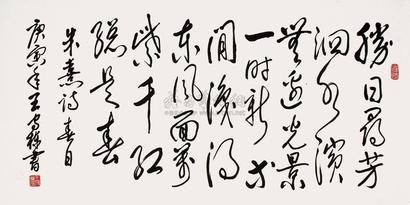 勝日尋芳
泗水濱
無邊光景
一時新等
閒識得
東風面萬
紫千紅
總是春
朱熹詩春日
庚寅年王書